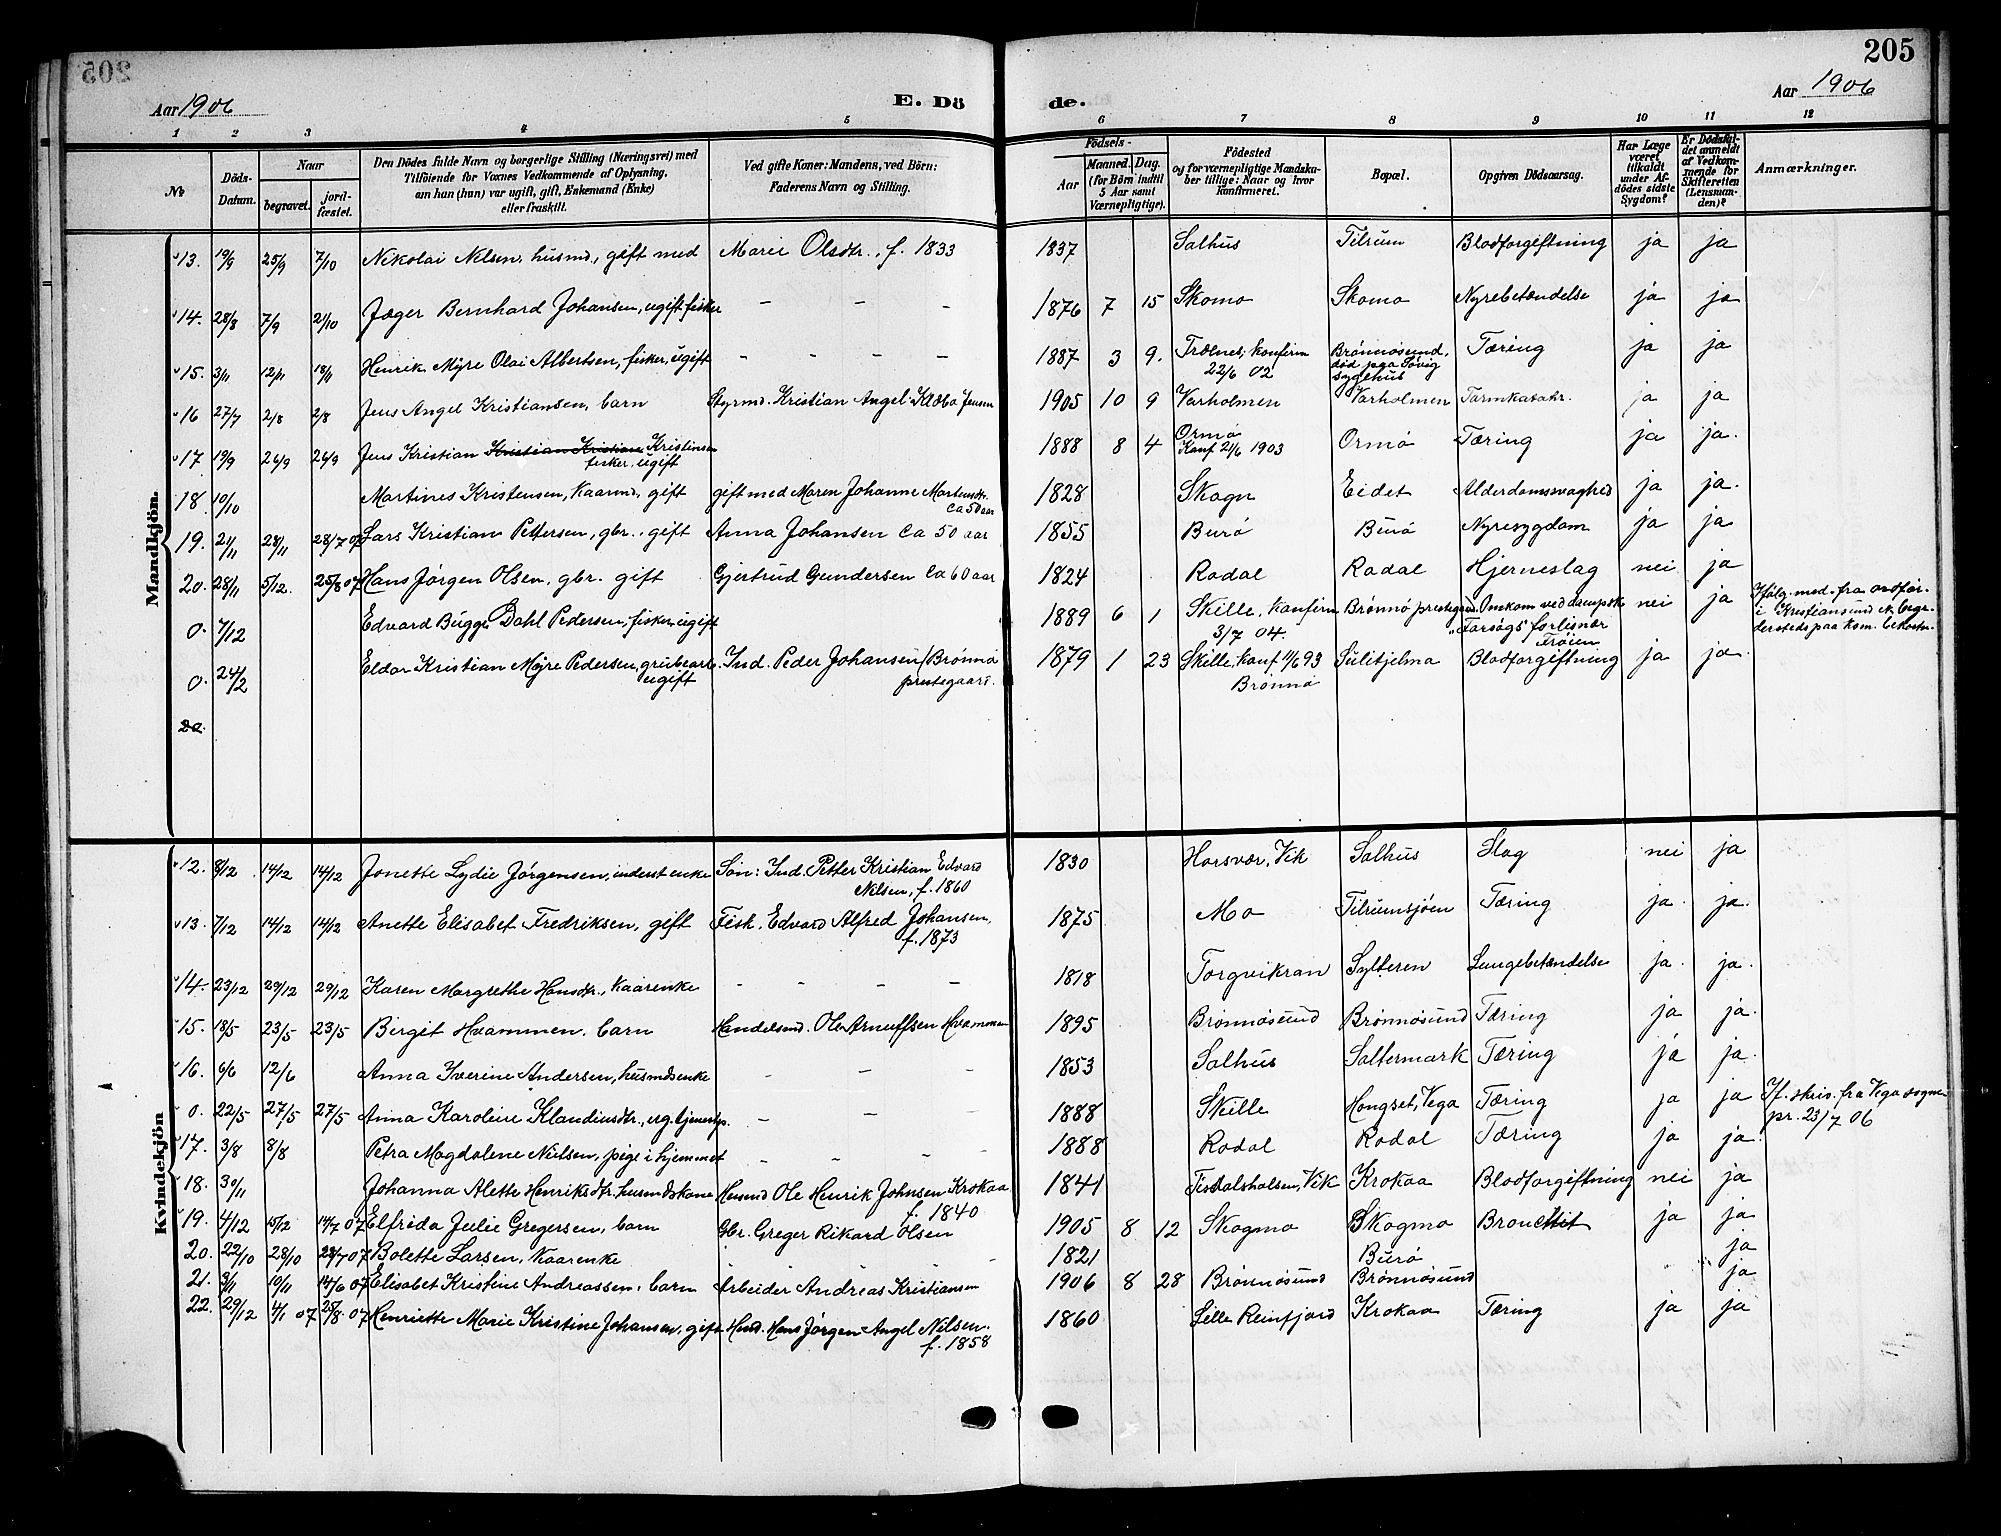 205
205
Aar 1906
E. Dö
de.
Aar 1906
1 2 3 4 5 6 7 8 9 10 11 12
No
Döds-Datum.
Naar
begravet.
jord-fæstet.
Den Dödes fulde Navn og borgerlige Stilling (Næringsvei) med
Tilföiende for Voxnes Vedkommende af Oplysning,
om han (hun) var ugift, gift, Enkemand (Enke)
eller fraskilt.
Ved gifte Koner: Mandens, ved Börn:
Faderens Navn og Stilling.
Födsels-
Aar
Maaned. Dag.
(for Börn indtil
5 Aar samt
Værnepligtige).
Födested
og for værnepligtige Mandska-
ber tillige: Naar og hvor
konfirmeret.
Bopæl.
Opgiven Dödsaarsag.
Har Læge
været
tilkaldt
under Af-
dödes sidste
Sygdom?
Er Dödsfal-
det anmeldt
af Vedkom-
mende for
Skifteretten
(Lensman-
den)?
Anmærkninger.
Mandkjön.
13. 19/9 25/9 7/10 Nikolai Nilsen, husmd., gift med Marie Olsdtr., f. 1833 1837 Salhus Tilrum Blodforgiftning ja ja
14. 28/8 7/9 2/10 Jæger Bernhard Johansen, ugift fisker – – – 1876 7 15 Skomo Skomo Nyrebetændelse ja ja
15. 3/11 12/11 18/11 Henrik Myre Olai Albertsen, fisker, ugift – – – – 1887 3 9. Trælnes, Konfirm 22/6 02 Brønnøsund, død paa Søvig sygehus Tæring ja ja
16 27/7 2/8 2/8 Jens Angel Kristiansen, barn Styrmd. Kristian Angel Klæbo Jensen 1905 10 9 Varholmen Varholmen Tarmkatahr. ja ja
17 19/9 26/9 26/9 Jens Kristian Kristian Kristian Kristinsen fisker, ugift 1888 8 4 Ormø Konf 21/6 1903 Ormø Tæring ja ja.
18. 10/10 Martines Kristensen, kaarmd, gift gift med Maren Johanne Martensdtr. ca 50 aar 1828 Skogn Eidet Alderdomssvaghed ja ja.
19. 21/11 28/11 28/7 07 Lars Kristian Pettersen, gbr., gift Anna Johansen ca 50 aar 1855 Burø Burø Nyresygdom ja ja
20. 28/11 5/12. 25/8 07 Hans Jørgen Olsen, gbr. gift Gjertrud Gundersen ca 60 aar 1824 Rodal Rodal Hjerneslag nei ja
0. 7/12 Edvard Bugge Dahl Pedersen, fisker, ugift 1889 6 1 Skille, Konfirm 3/7 04. Brønnø prestegaard. Omkom ved dampsk „Torsøgs" forlis nær Frøien nei ja Ifølg. med. fra ordfør. i Kristiansund N. begr. dersteds paa kom. bekostn.
0. 24/2 Eldor Kristian Myre Pedersen, grubearb. ugift Ind. Peder Johansen / Brønnø prestegaard. 1879 1 23 Skille, Konf 11/6 93 Brønnø Sulitjelma Blodforgiftning ja ja.
20.
Kvindekjön
12. 8/12 14/12 14/12 Jonette Lydie Jørgensen, inderst enke Søn: Ind. Petter Kristian Edvard Nilsen, f. 1860 1830 Horsvær, Vik Salhus Slag nei ja
13. 7/12 14/12 14/12 Anette Elisabet Fredriksen, gift Fisk. Edvard Alfred Johansen, f. 1873 1875 Mo Tilrumsjøen Tæring ja. ja.
14. 23/12 29/12 29/12 Karen Margrethe Hansdtr., kaarenke – – – – 1818 Torgvikran Sylteren Lungebetændelse ja. ja.
15. 18/5 23/5 23/5 Birgit Hvammen, barn Handelsmd. Ole Arnuffsen Hvammen 1895 Brønnøsund Brønnøsund Tæring ja ja.
16. 6/6 12/6 Anna Iverine Andersen, husmdsenke – – – 1853 Salhus Saltermark Tæring ja ja.
0. 22/5 27/5 27/5 Anna Karoline Klaudiusdtr., ug. tjenestp. – – 1888 Skille Hongset, Vega Tæring ja ja If. skriv. fra Vega sogne pr. 23/7 06
17. 3/8 8/8 Petra Magdalene Nilsen, pige i hjemmet – – – 1888 Rodal Rodal Tæring ja ja.
18. 30/11 Johanna Alette Henriksdtr. husmdskone Husmd Ole Henrik Johnsen Krokaa f. 1840 1841 Tisdalsholsen, Vik Krokaa Blodforgiftning nei ja
19. 4/12 15/12 14/7 07 Elfrida Julie Gregersen, barn Gbr. Greger Rikard Olsen 1905 8 12 Skogmo Skogmo Bronchit ja ja
20. 22/10 28/10 28/7 07 Bolette Larsen, kaarenke – 1821 Burø ja
21. 3/11 10/11 14/6 07 Elisabet Kristine Andreassen, barn Arbeider Andreas Kristiansen 1906 8 28 Brønnøsund Brønnøsund ja
22. 29/12 4/1 07 25/8. 07 Henriette Marie Kristine Johansen, gift Husd. Hans Jørgen Angel Nilsen. f. 1858 1860 Lille Reinfjord Krokaa Tæring ja ja